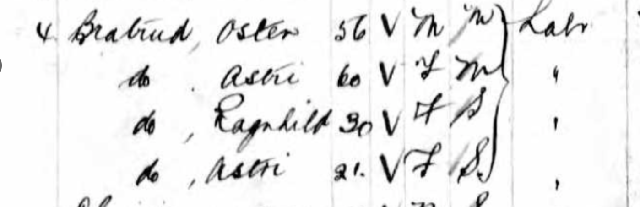 4 Bratrud, Osten 56 V M M } Labr
do , Astri 60 V F M "
do , Ragnhild 30 V F S "
do , Astri 21. V F S. "